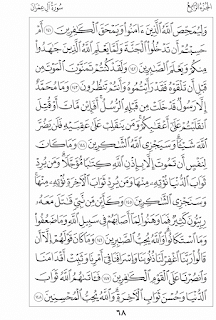 الجزء الرابع سورة آل عمران
وَلِيُمَحِّصَ اللَّهُ الَّذِينَ ءَامَنُوا وَيَمْحَقَ الْكَٰفِرِينَ ١٤١ أَمْ
حَسِبْتُمْ أَن تَدْخُلُوا الْجَنَّةَ وَلَمَّا يَعْلَمِ اللَّهُ الَّذِينَ جَٰهَدُوا
مِنكُمْ وَيَعْلَمَ الصَّٰبِرِينَ ١٤٢ وَلَقَدْ كُنتُمْ تَمَنَّوْنَ الْمَوْتَ مِن
قَبْلِ أَن تَلْقَوْهُ فَقَدْ رَأَيْتُمُوهُ وَأَنتُمْ تَنظُرُونَ ١٤٣ وَمَا مُحَمَّدٌ
إِلَّا رَسُولٌ قَدْ خَلَتْ مِن قَبْلِهِ الرُّسُلُ أَفَإِي۟ن مَّاتَ أَوْ قُتِلَ
انقَلَبْتُمْ عَلَىٰ أَعْقَٰبِكُمْ وَمَن يَنقَلِبْ عَلَىٰ عَقِبَيْهِ فَلَن يَضُرَّ اللَّهَ
شَيْـًٔا وَسَيَجْزِي اللَّهُ الشَّٰكِرِينَ ١٤٤ وَمَا كَانَ
لِنَفْسٍ أَن تَمُوتَ إِلَّا بِإِذْنِ اللَّهِ كِتَٰبًا مُّؤَجَّلًا وَمَن يُرِدْ
ثَوَابَ الدُّنْيَا نُؤْتِهِ مِنْهَا وَمَن يُرِدْ ثَوَابَ الْآخِرَةِ نُؤْتِهِ مِنْهَا
وَسَنَجْزِي الشَّٰكِرِينَ ١٤٥ وَكَأَيِّن مِّن نَّبِيٍّ قَٰتَلَ مَعَهُ
رِبِّيُّونَ كَثِيرٌ فَمَا وَهَنُوا لِمَا أَصَابَهُمْ فِي سَبِيلِ اللَّهِ وَمَا ضَعُفُوا
وَمَا اسْتَكَانُوا وَاللَّهُ يُحِبُّ الصَّٰبِرِينَ ١٤٦ وَمَا كَانَ قَوْلَهُمْ إِلَّا أَن
قَالُوا رَبَّنَا اغْفِرْ لَنَا ذُنُوبَنَا وَإِسْرَافَنَا فِي أَمْرِنَا وَثَبِّتْ أَقْدَامَنَا
وَانصُرْنَا عَلَى الْقَوْمِ الْكَٰفِرِينَ ١٤٧ فَـَٔاتَىٰهُمُ اللَّهُ ثَوَابَ
الدُّنْيَا وَحُسْنَ ثَوَابِ الْآخِرَةِ وَاللَّهُ يُحِبُّ الْمُحْسِنِينَ ١٤٨
٦٨